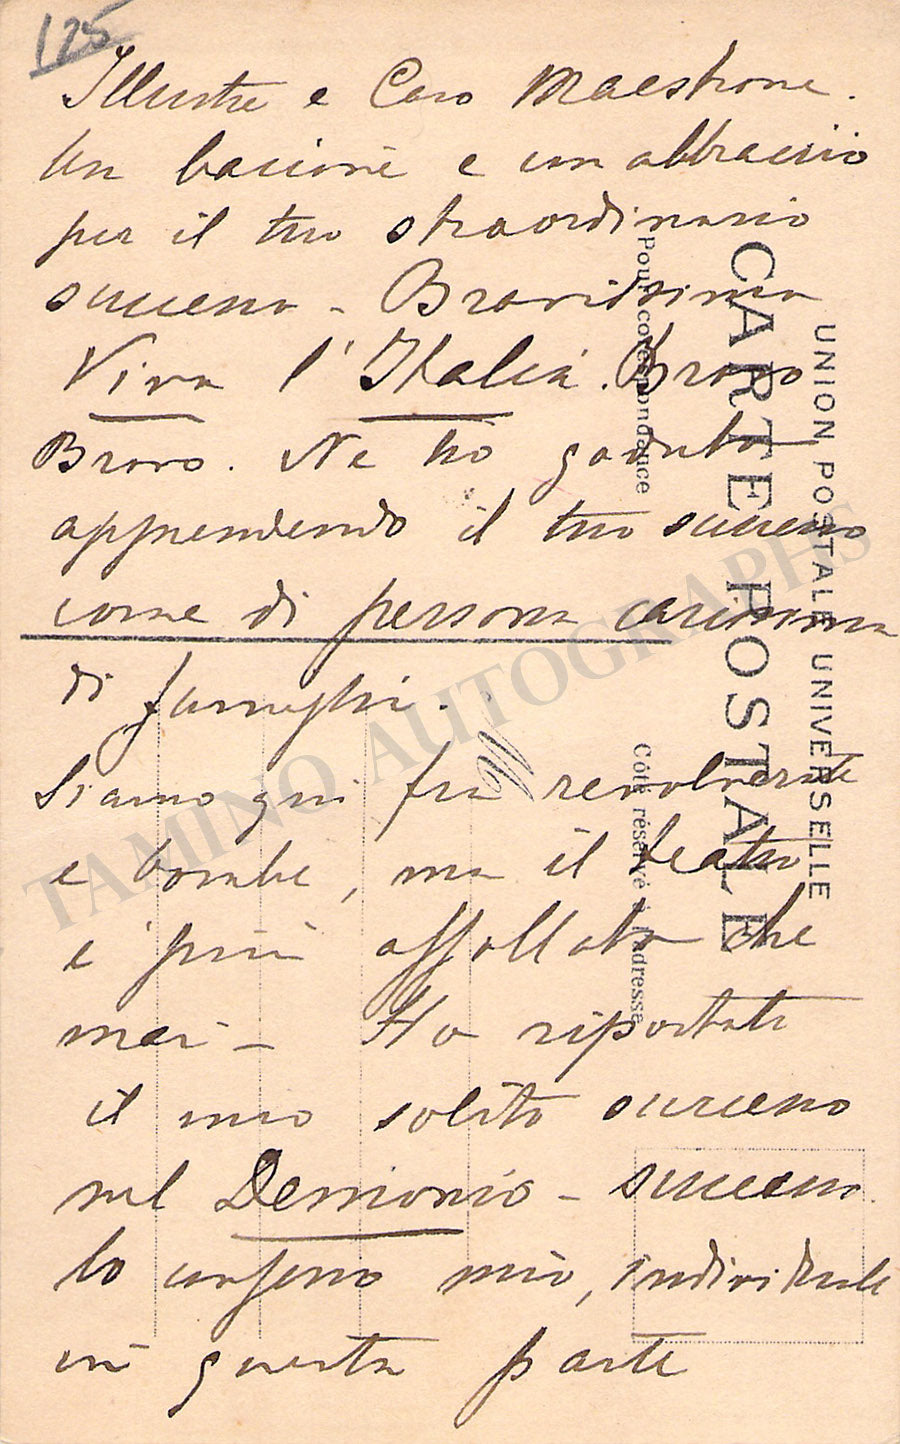 125
Illustre e Caro Maestrone.
Un bacione e un abbraccio
per il tuo straordinario
successo - Bravissimo
Viva l'Italia. Bravo
Bravo. Ne ho goduto
apprendendo il tuo successo
come di persona carissima
di famiglia..
Siamo qui fra revolverate
e bombe, ma il teatro
e' più affollato che
mai - Ho riportato
il mio solito successo
nel Demonio - successo
lo confesso mio, individuale
in questa parte
UNION POSTALE UNIVERSELLE
CARTE POSTALE
Pour corespondance
Côté réservé à l'adressa
TAMINO AUTOGRAPHS